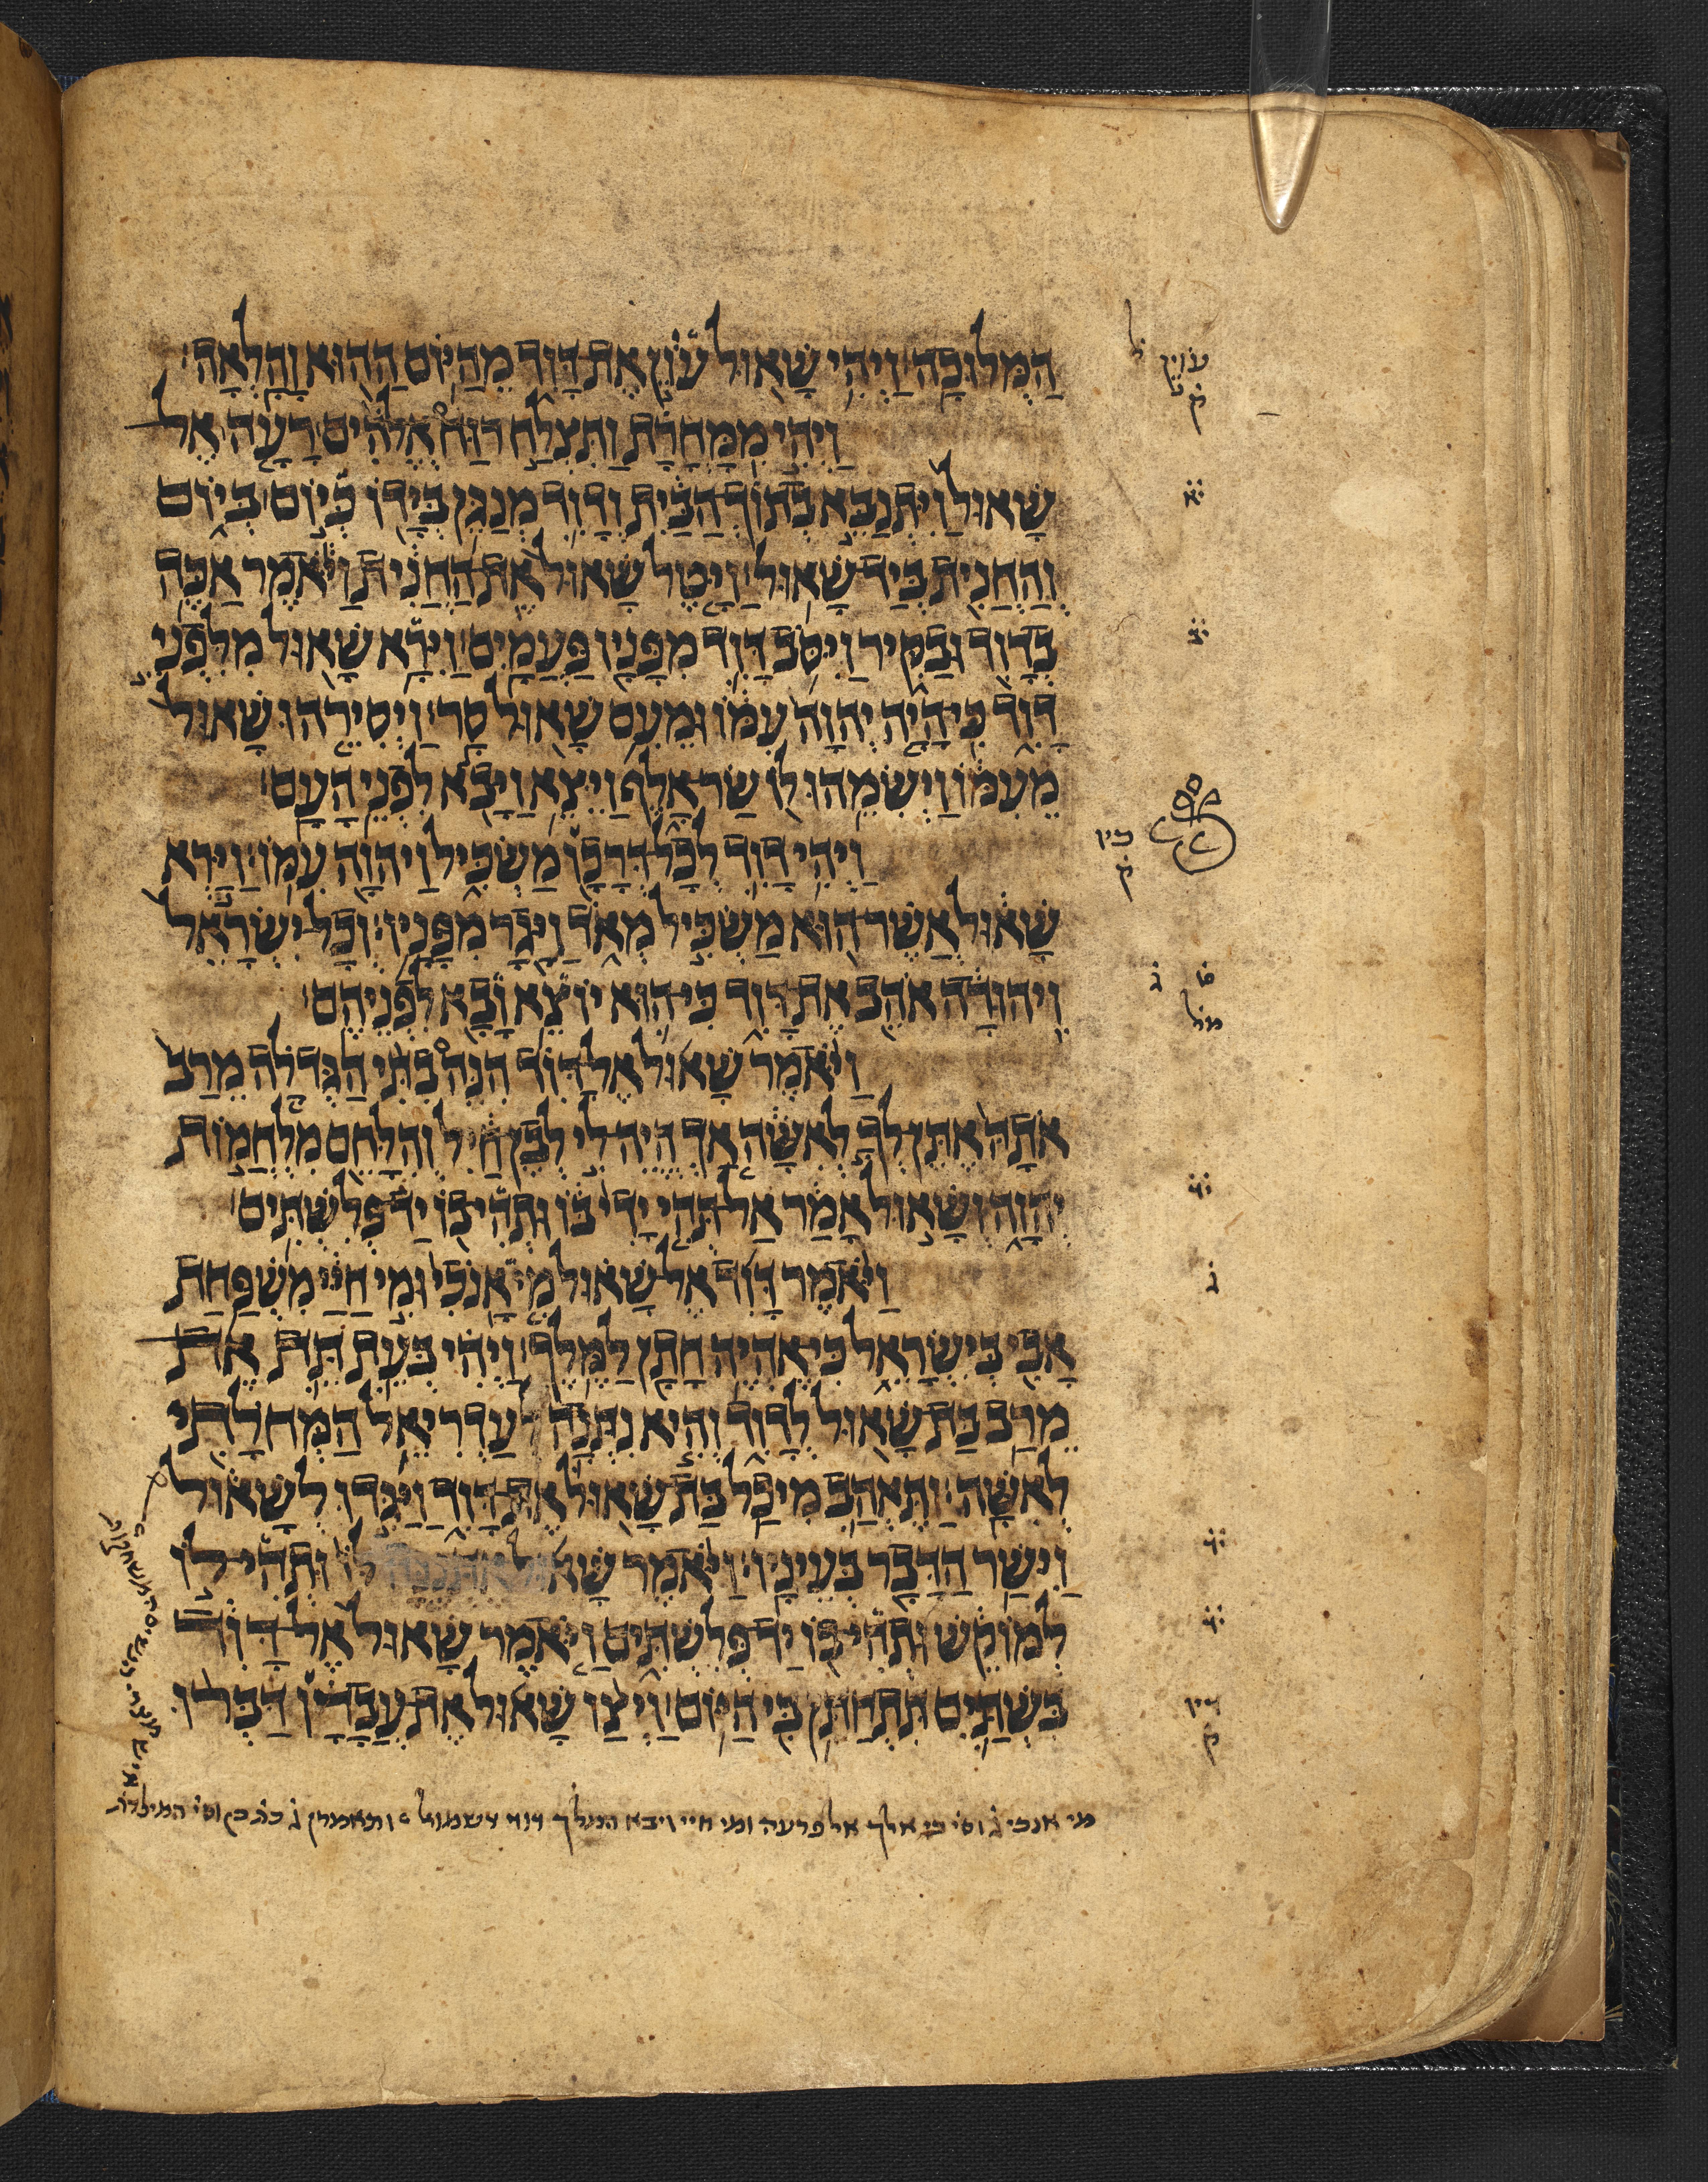 עוין ק
ל
המלוכה ויהי שאול עון את דוד מהיום ההוא והלאה׃
ויהי ממחרת ותצלח רוח אלהים רעה אל
שאול ויתנבא בתוך הבית ודוד מנגן בידו כיום ביום
והחנית ביד שאול׃ ויטל שאול את החנית ויאמר אכה
בדוד ובקיר ויסב דוד מפניו פעמים׃ וירא שאול מלפני
דוד כי היה יהוה עמו ומעם שאול סר׃ ויסירהו שאול
מעמו וישמהו לו שר אלף ויצא ויבא לפני העם׃
כיו ק
ויהי דוד לכל דרכו משכיל ויהוה עמו׃ וירא
שאול אשר הוא משכיל מאד ויגר מפניו׃ וכל ישראל
ויהודה אהב את דוד כי הוא יוצא ובא לפניהם׃
ויאמר שאול אל דוד הנה בתי הגדלה מרב
אתה אתן לך לאשה אך היה לי לבן חיל והלחם מלחמות
יהוה ושאול אמר אל תהי ידי בו ותהי בו יד פלשתים׃
ויאמר דוד אל שאול מי אנכי ומי חיי משפחת
אבי בישראל כי אהיה חתן למלך׃ ויהי בעת תת את
מרב בת שאול לדוד והיא נתנה לעדריאל המחלתי
לאשה׃ ותאהב מיכל בת שאול את דוד ויגדו לשאול
וישר הדבר בעיניו׃ ויאמר שאול אתננה לו ותהי לו
למוקש ותהי בו יד פלשתים ויאמר שאול אל דוד
בשתים תתחתן בי היום׃ ויצו שאול את עבדיו דברו
דיו ק
מי אנכי ג וסי כי אלך אל פרעה ומי חיי ויבא המלך דוד דשמואל